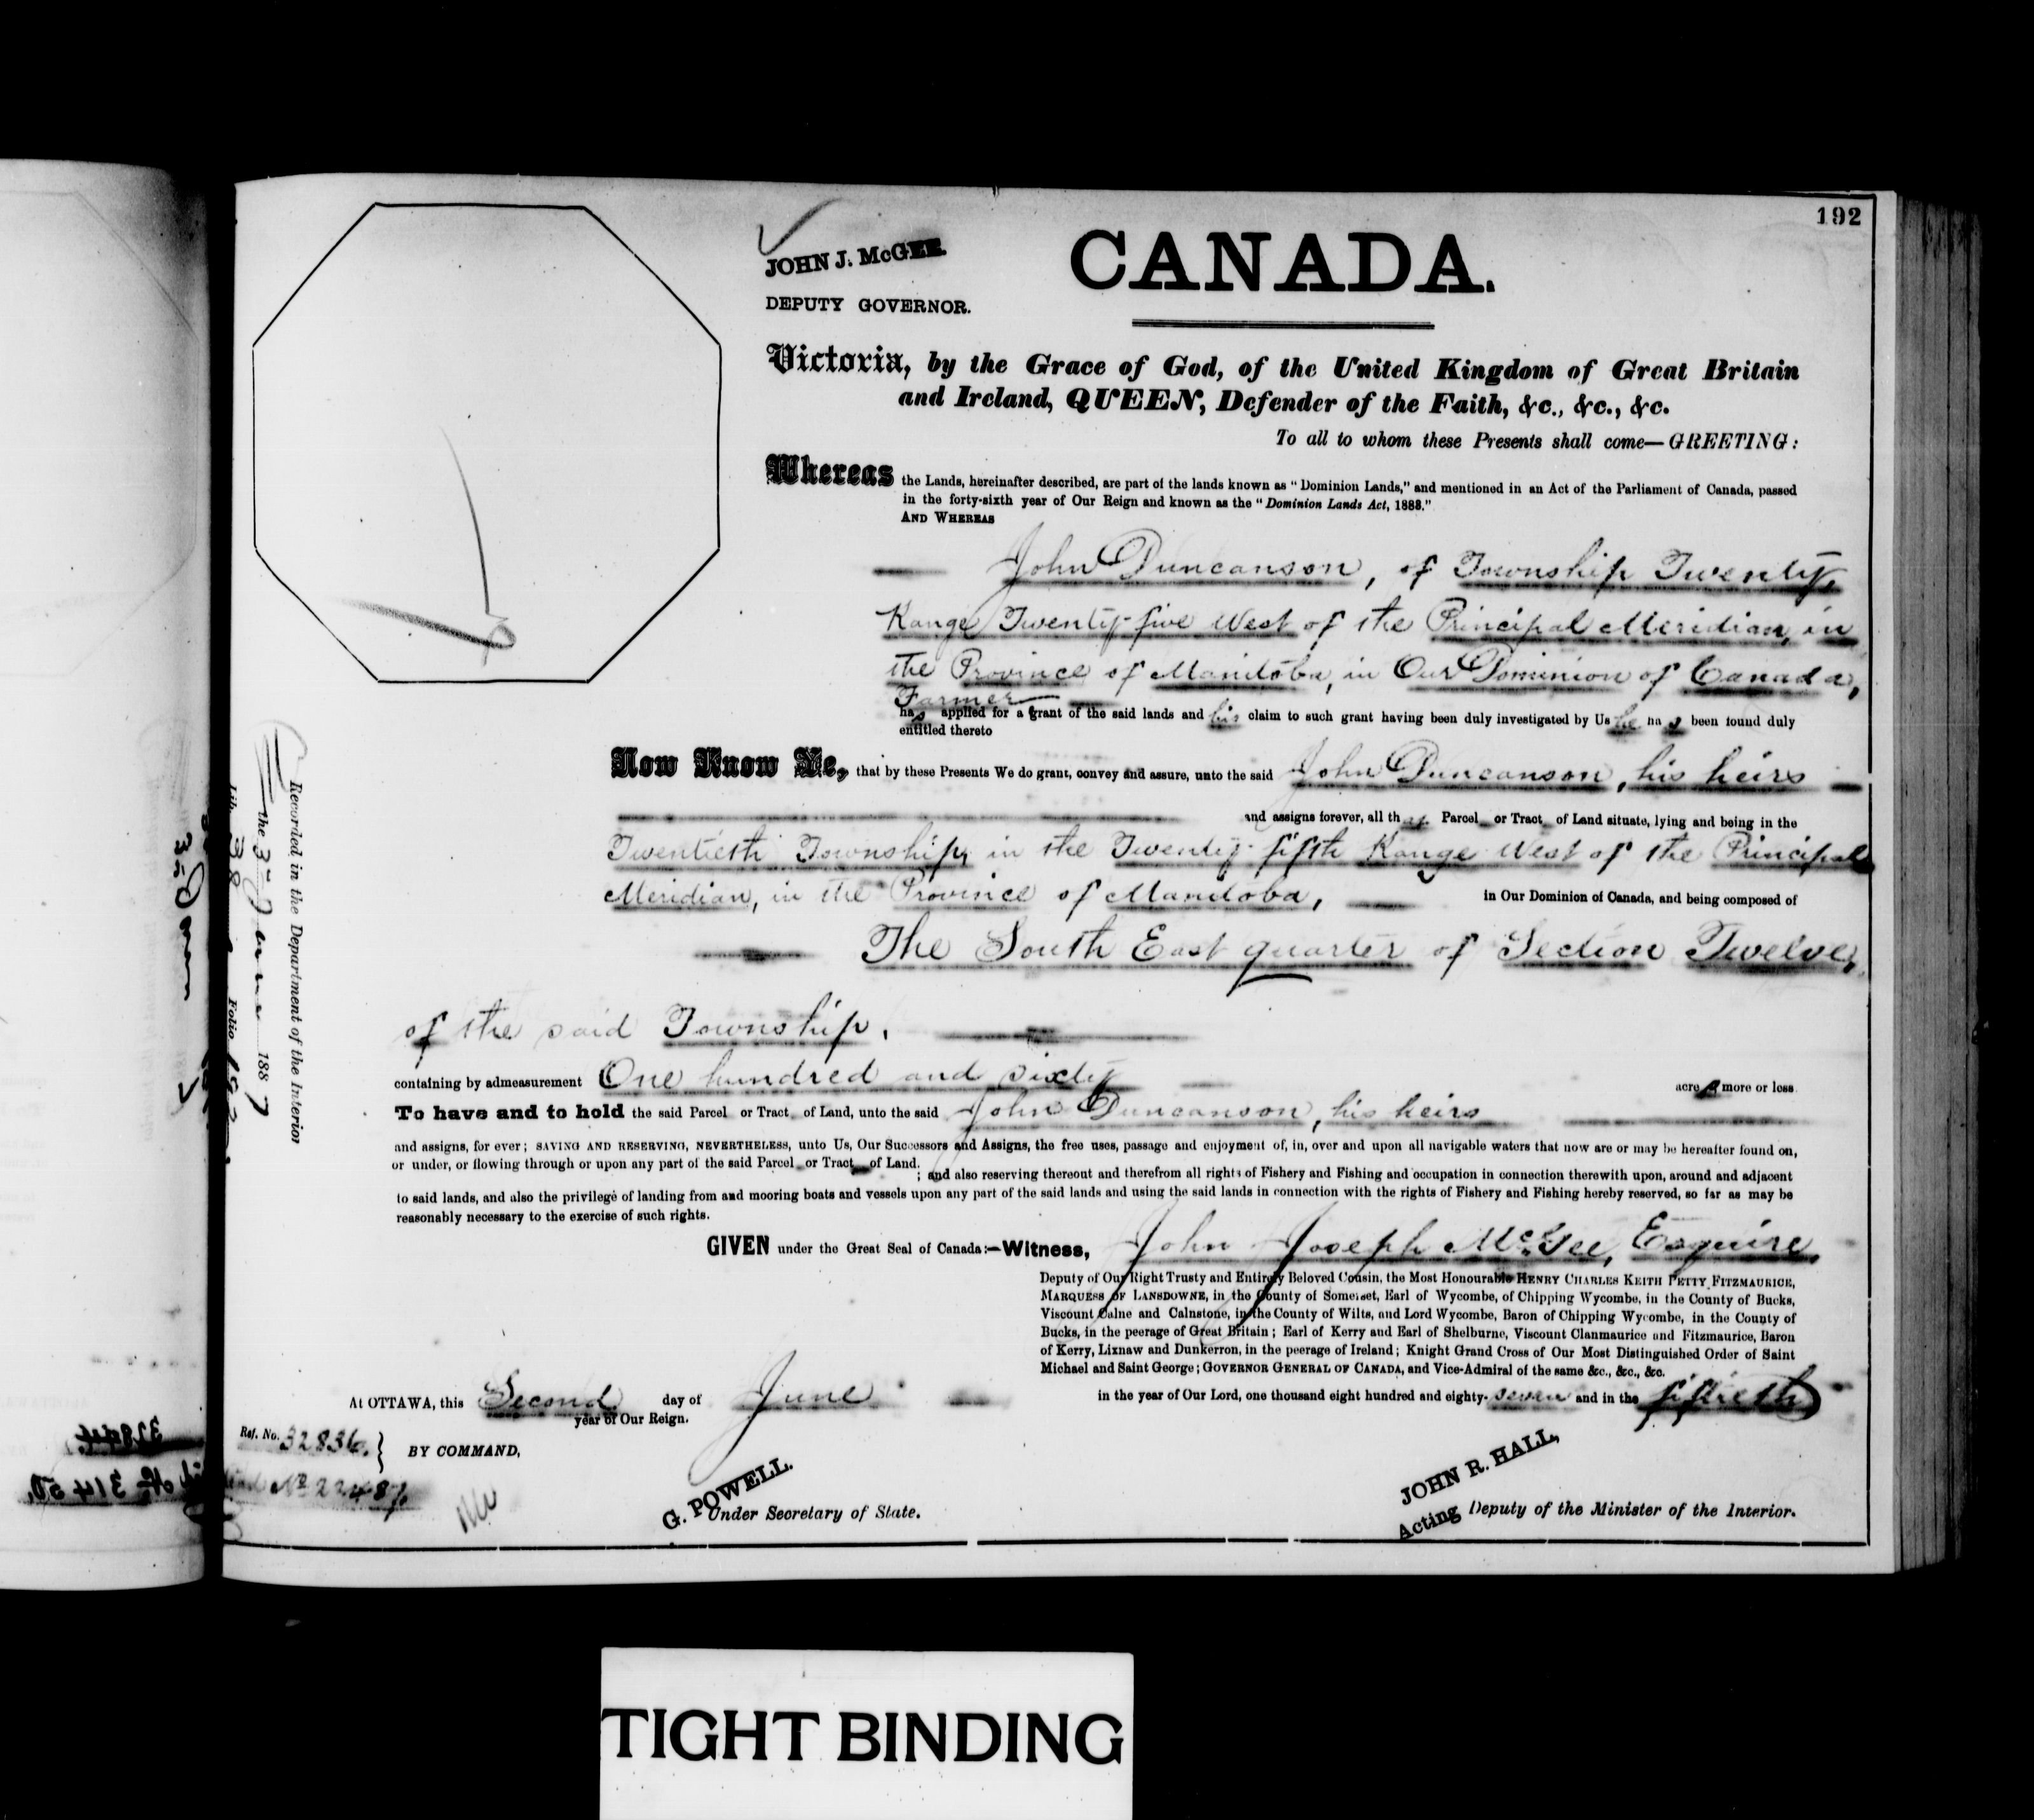 192
JOHN J. McGEE.
DEPUTY GOVERNOR.
CANADA.
Victoria, by the Grace of God, of the United Kingdom of Great Britain
and Ireland, QUEEN, Defender of the Faith, &c., &c., &c.
To all to whom these Presents shall come—GREETING:
Whereas the Lands, hereinafter described, are part of the lands known as "Dominion Lands," and mentioned in an Act of the Parliament of Canada, passed
in the forty-sixth year of Our Reign and known as the "Dominion Lands Act, 1883."
AND WHEREAS
John Duncanson, of Township Twenty,
Range Twenty-five West of the Principal Meridian, in
the Province of Manitoba, in Our Dominion of Canada,
Farmer
has applied for a grant of the said lands and his claim to such grant having been duly investigated by Us he has been found duly
entitled thereto
Now Know Ye, that by these Presents We do grant, convey and assure, unto the said John Duncanson, his heirs
and assigns forever, all that Parcel or Tract of Land situate, lying and being in the
Twentieth Township, in the Twenty-fifth Range West of the Principal
Meridian, in the Province of Manitoba, in Our Dominion of Canada, and being composed of
The South East quarter of Section Twelve,
of the said Township.
containing by admeasurement One hundred and sixty acres more or less
To have and to hold the said Parcel or Tract of Land, unto the said John Duncanson, his heirs
and assigns, for ever; SAVING AND RESERVING, NEVERTHELESS, unto Us, Our Successors and Assigns, the free uses, passage and enjoyment of, in, over and upon all navigable waters that now are or may be hereafter found on,
or under, or flowing through or upon any part of the said Parcel or Tract of Land.
; and also reserving thereout and therefrom all rights of Fishery and Fishing and occupation in connection therewith upon, around and adjacent
to said lands, and also the privilege of landing from and mooring boats and vessels upon any part of the said lands and using the said lands in connection with the rights of Fishery and Fishing hereby reserved, so far as may be
reasonably necessary to the exercise of such rights.
GIVEN under the Great Seal of Canada:—Witness, John Joseph McGee, Esquire,
Deputy of Our Right Trusty and Entirely Beloved Cousin, the Most Honourable HENRY CHARLES KEITH PETTY FITZMAURICE,
MARQUESS OF LANSDOWNE, in the County of Somerset, Earl of Wycombe, of Chipping Wycombe, in the County of Bucks,
Viscount Calne and Calnstone, in the County of Wilts, and Lord Wycombe, Baron of Chipping Wycombe, in the County of
Bucks, in the peerage of Great Britain; Earl of Kerry and Earl of Shelburne, Viscount Clanmaurice and Fitzmaurice, Baron
of Kerry, Lixnaw and Dunkerron, in the peerage of Ireland; Knight Grand Cross of Our Most Distinguished Order of Saint
Michael and Saint George; GOVERNOR GENERAL OF CANADA, and Vice-Admiral of the same &c., &c., &c.
At OTTAWA, this Second day of June in the year of Our Lord, one thousand eight hundred and eighty-seven and in the fiftieth
year of Our Reign.
Ref. No. 32836.
BY COMMAND,
No 22487
G. POWELL.
Under Secretary of State.
JOHN R. HALL,
Acting Deputy of the Minister of the Interior.
Recorded in the Department of the Interior
the 3 June 1887
Lib. 38 Folio 192
TIGHT BINDING